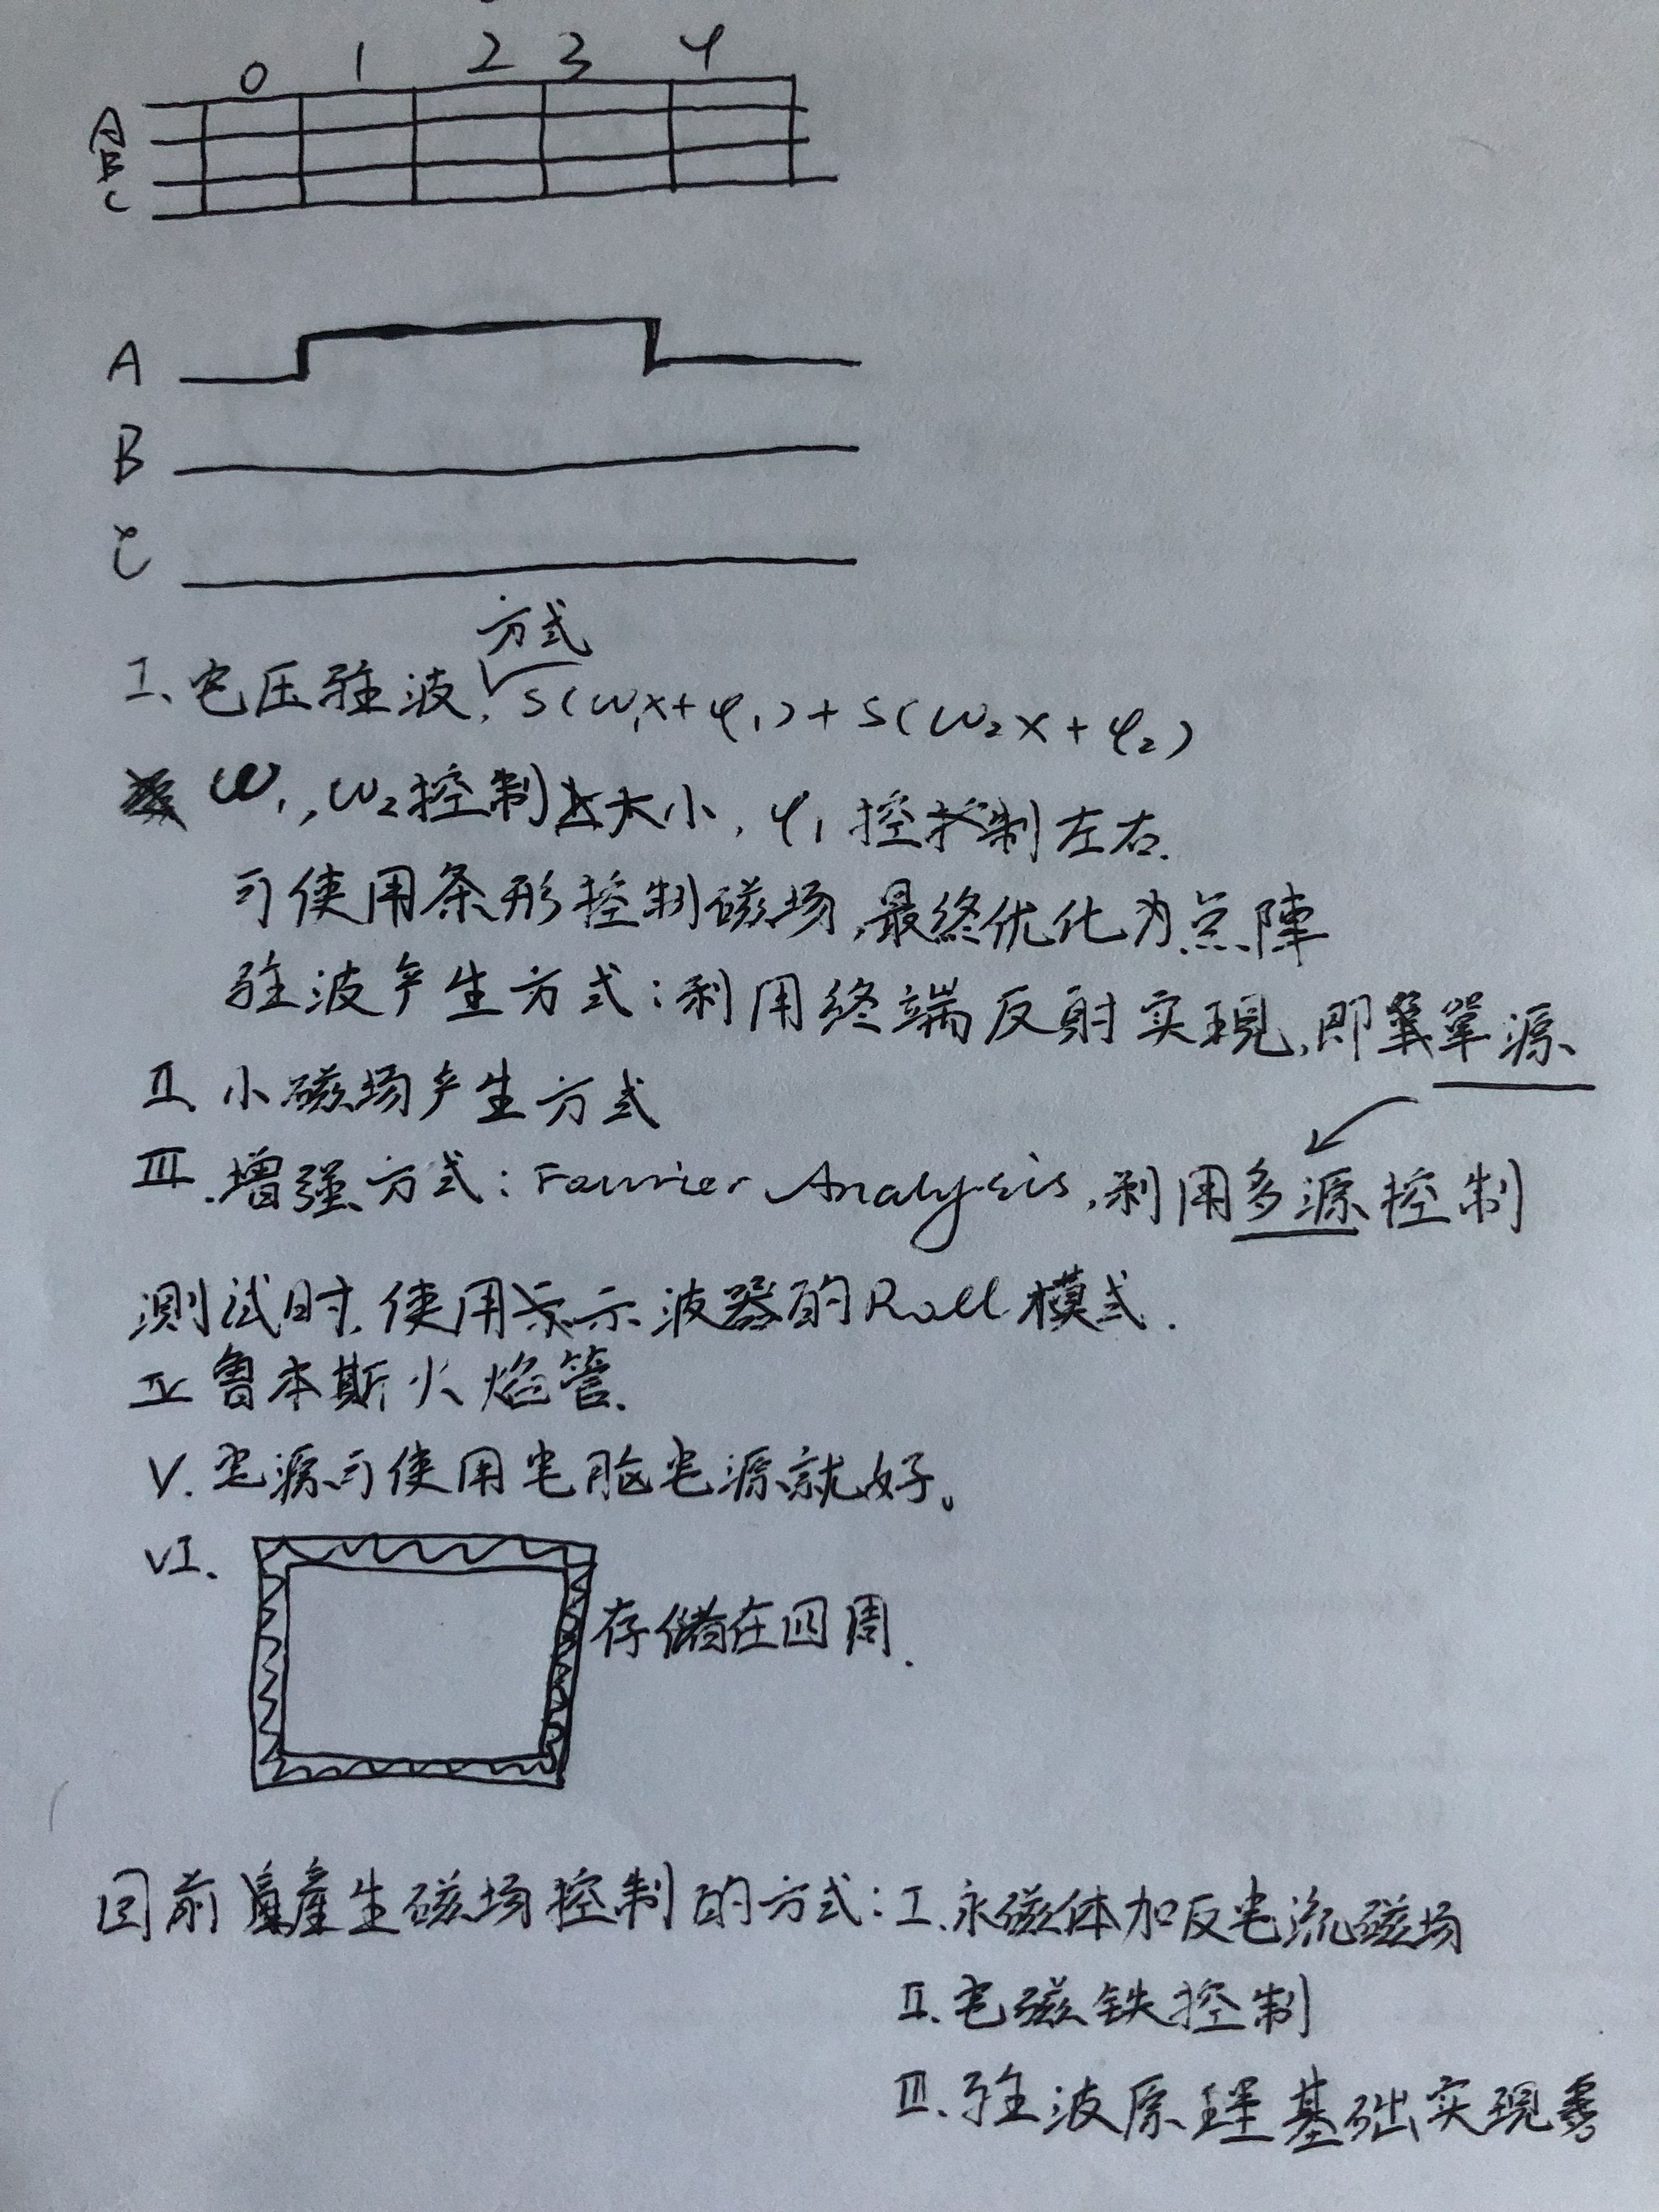 0 1 2 3 4
A
B
C
A
B
C
方式
I、电压驻波, S(ω₁x+φ₁)+S(ω₂x+φ₂)
ω₁,ω₂控制大小,φ₁控制左右.
可使用条形控制磁场,最终优化为点陣
驻波产生方式:利用终端反射实現,即單源
II、小磁场产生方式
III.增强方式:Fourier Analysis,利用多源控制
测试时,使用示波器的Roll模式.
IV 鲁本斯火焰管.
V.电源可使用电脑电源就好。
VI.
存储在四周.
目前產生磁场控制的方式:I.永磁体加反电流磁场
II.电磁铁控制
III.驻波原理基础实现